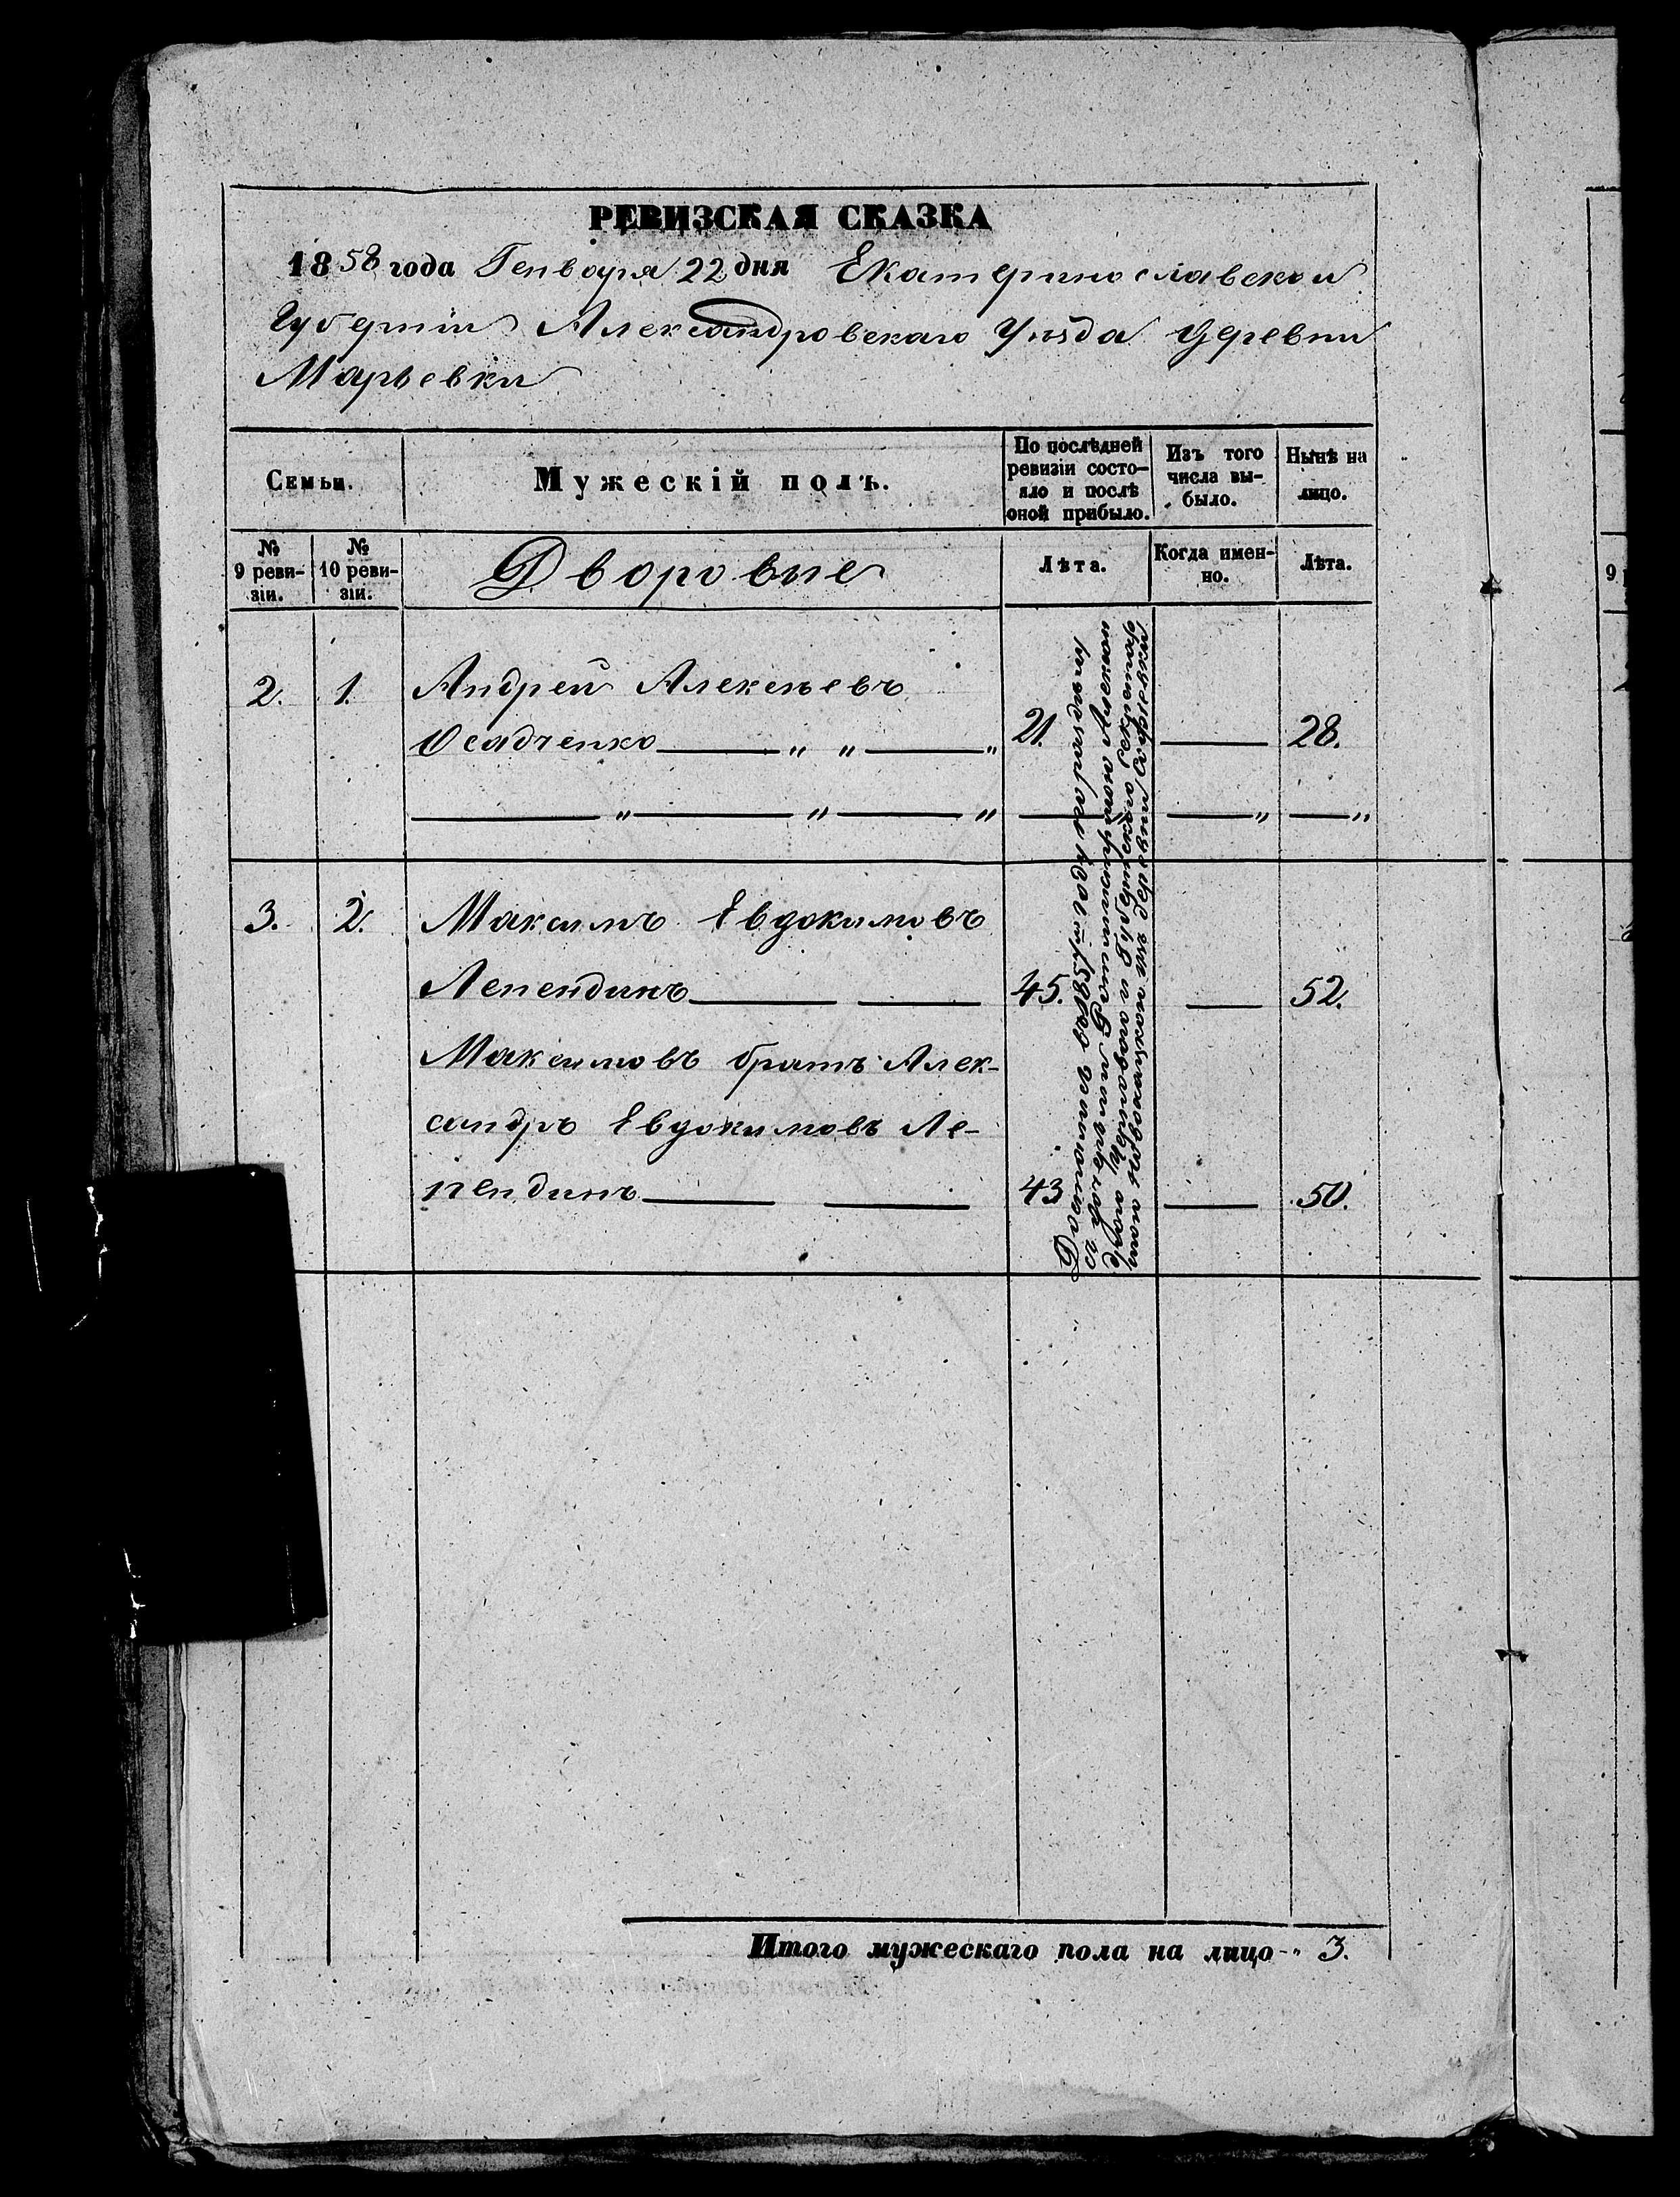 РЕВИЗСКАЯ СКАЗКА
1858 года Генваря 22 дня Екатеринославской
Губерніи Александровскаго Уѣзда деревни
Марьевки
Семьи.
Мужескій полъ.
По послѣдней
ревизіи состо-
яло и послѣ
оной прибыло.
Изъ того
числа вы-
было.
Нынѣ на
лицо.
№
9 реви-
зіи.
№
10 реви-
зіи.
Дворовые
Лѣта.
Когда имен-
но.
Лѣта.
2. 1. Андрей Алексѣевъ
Осадченко 21. 28.
3. 2. Максимъ Евдокимовъ
Лепендинъ 45. 52.
Максимовъ братъ Алек-
сандръ Евдокимовъ Ле-
пендинъ 43 50.
1851
деревни Софіевки
Итого мужескаго пола на лицо 3.
9